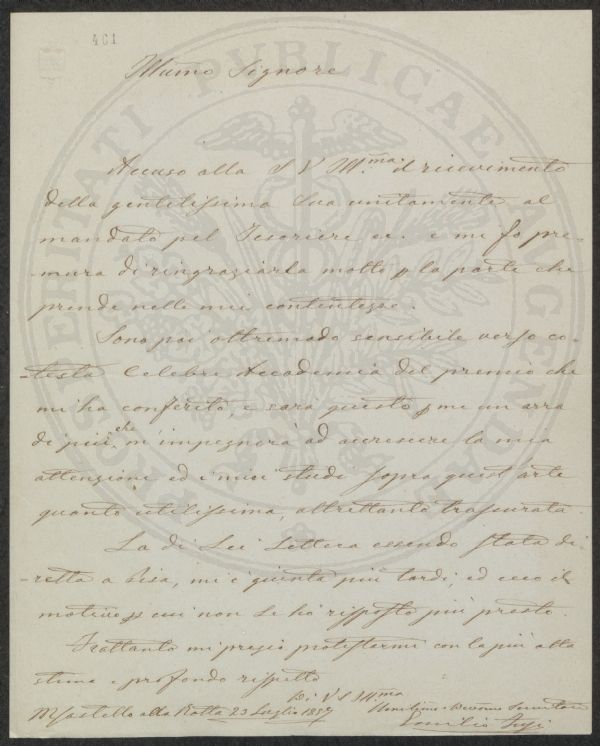 461
Illumo Signore
Accuso alla S V Ill.ma il ricevimento
della gentilissima Sua unitamente al
mandato pel Tesoriere ec. e mi fo pre-
-mura di ringraziarla molto p la parte che
prende nelle mie contentezze.
Sono poi oltremodo sensibile verso co-
-testa Celebre Accademia del premio che
mi ha conferito, e sarà questo p me un arra
di più che m'impegnerà ad accrescere la mia
attenzione ed i miei studi sopra quest'arte
quanto utilissima, altrettanto trascurata.
La di Lei Lettera essendo stata di-
-retta a Pisa, mi è giunta più tardi, ed ecco il
motivo p cui non Le ho risposto più presto.
Frattanto mi pregio protestarmi con la più alta
stima e profondo rispetto
Di V S Ill.ma
Castello alla 23 Luglio
Umilissimo Devotmo Servitore
Emilio
PROSPERITATI PVBLICAE AVGENDAE